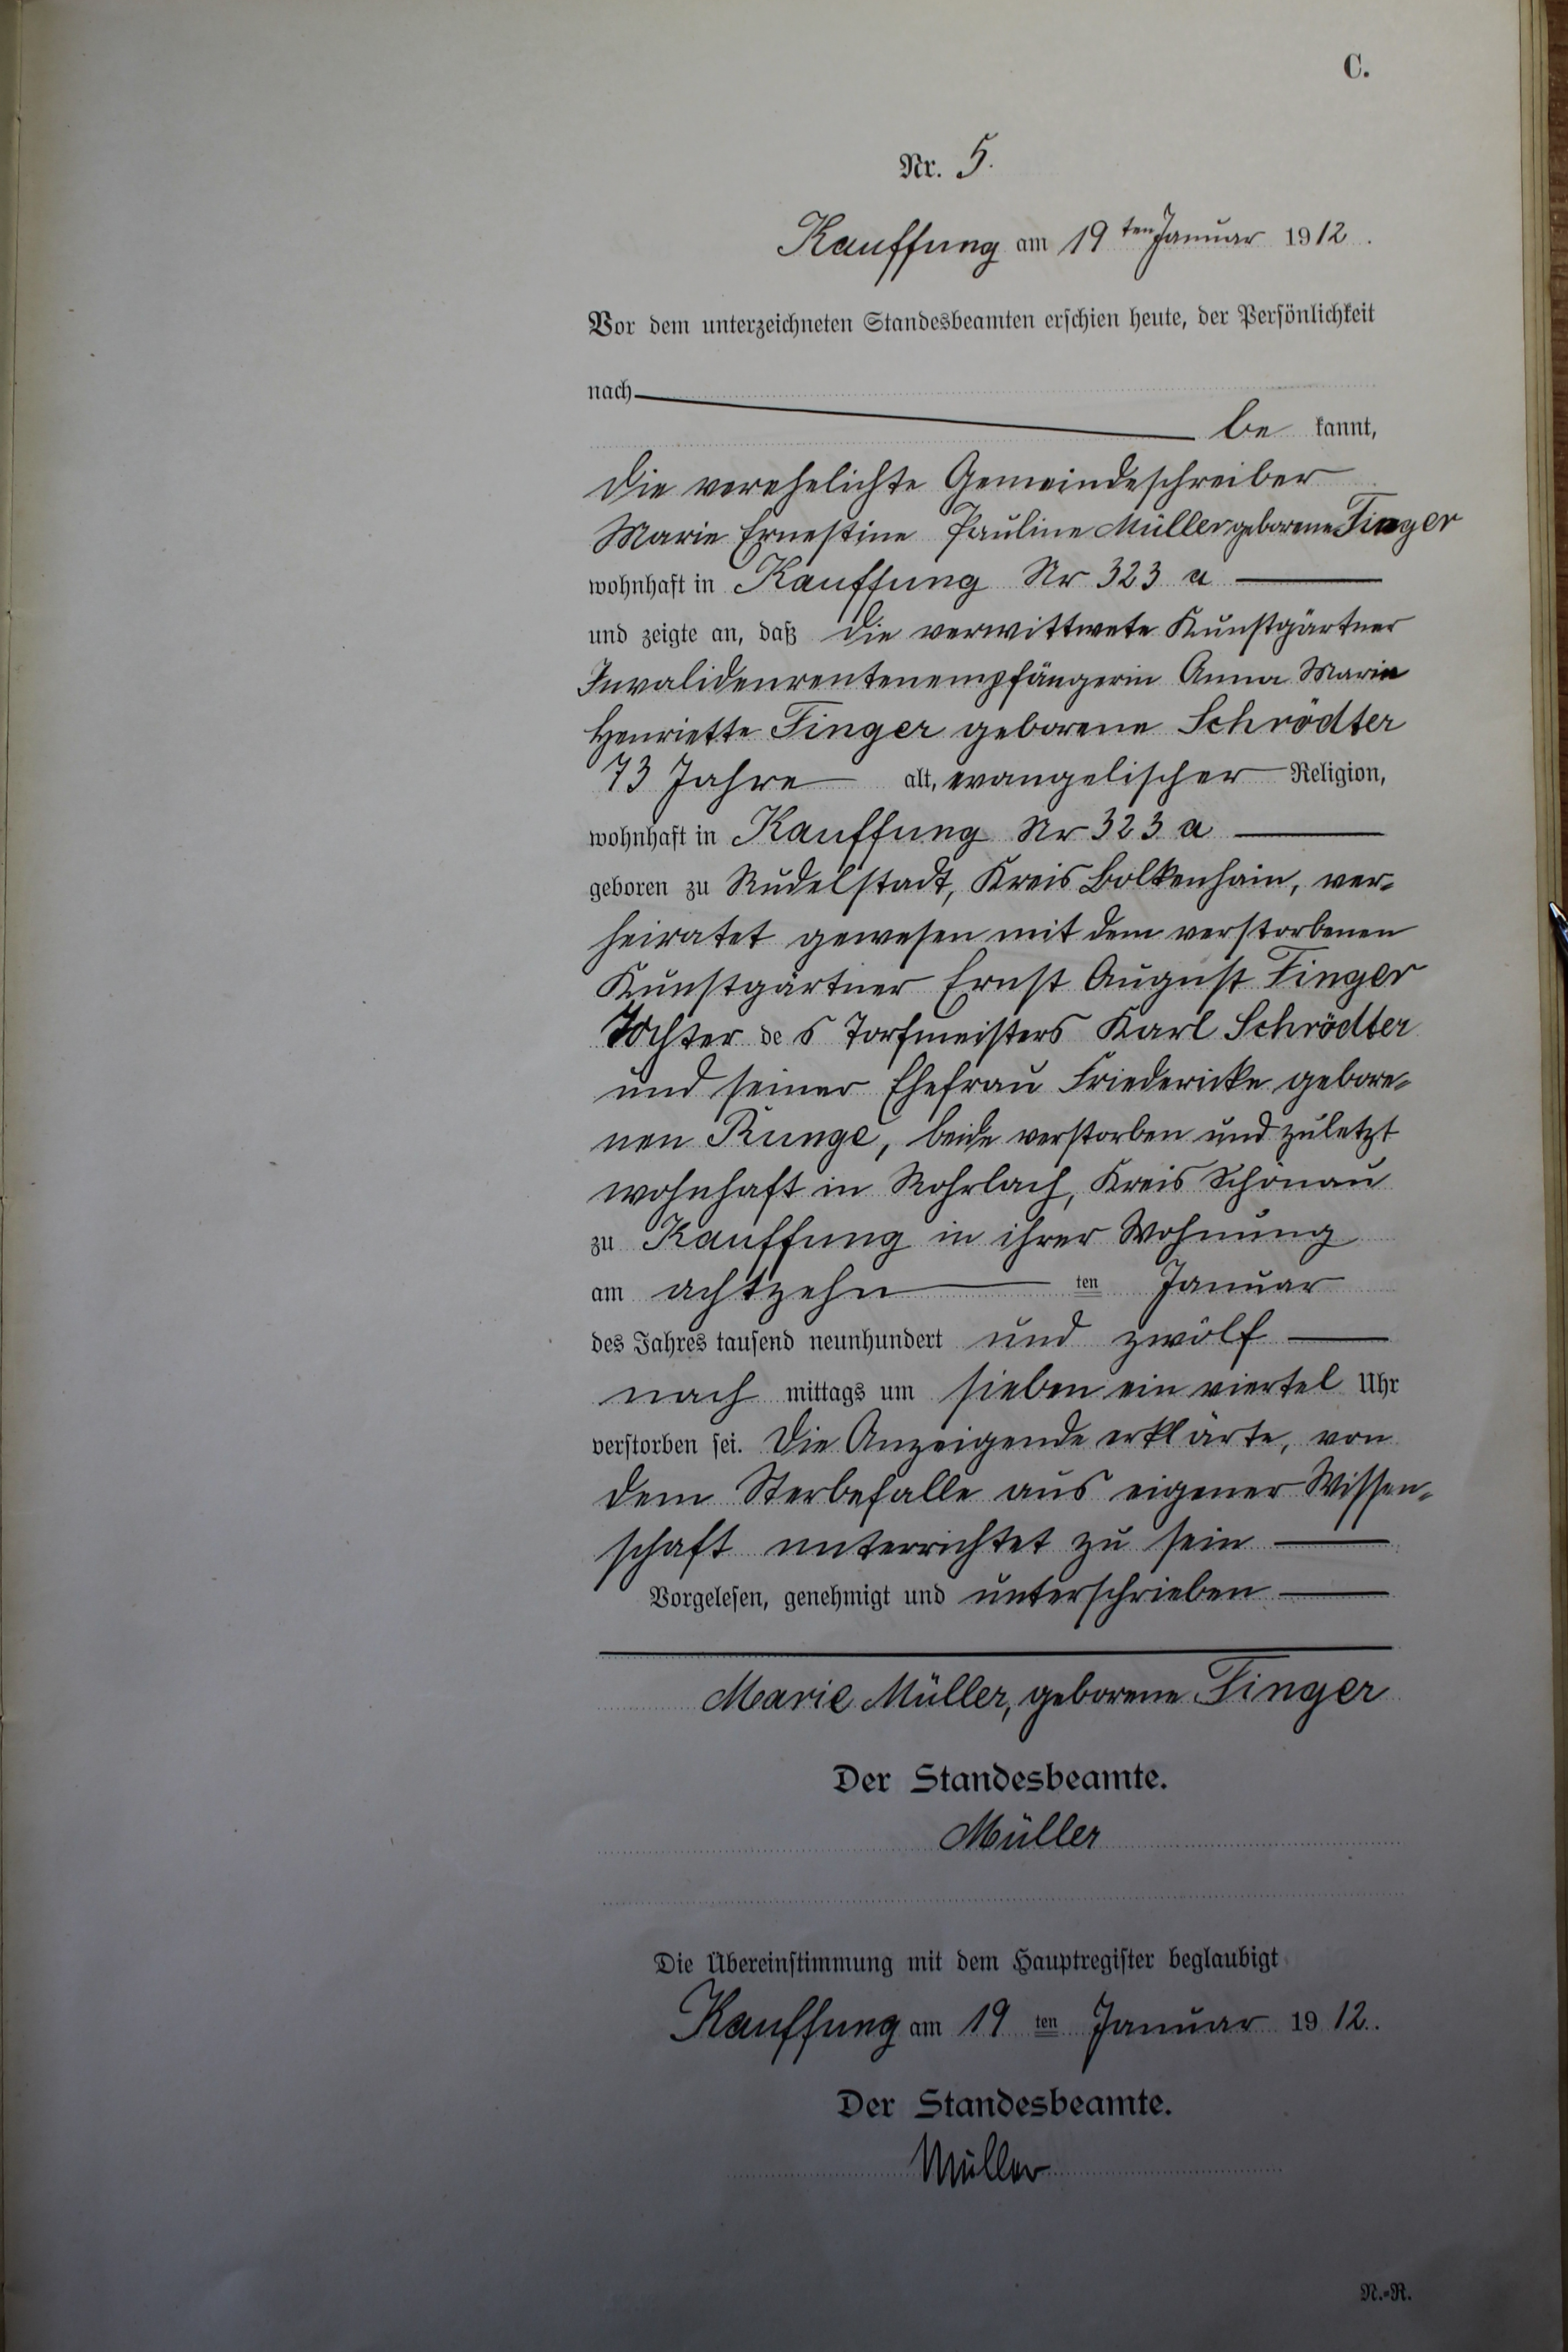 C.
Nr. 5.
Kauffung am 19ten Januar 1912.
Vor dem unterzeichneten Standesbeamten erschien heute, der Persönlichkeit
nach
be kannt,
die verehelichte Gemeindeschreiber
Marie Ernestine Pauline Müller geborene Finger
wohnhaft in Kauffung Nr 323 a
und zeigte an, daß die verwittwete Kunstgärtner
Invalidenrentenempfängerin Anna Marie
Henriette Finger geborene Schrödter
73 Jahre alt, evangelischer Religion,
wohnhaft in Kauffung Nr 323 a
geboren zu Rudelstadt, Kreis Bolkenhain, ver-
heiratet gewesen mit dem verstorbenen
Kunstgärtner Ernst August Finger
Tochter des Torfmeisters Karl Schrödter
und seiner Ehefrau Friedericke gebore-
nen Runge, beide verstorben und zuletzt
wohnhaft in Rohrlach, Kreis Schönau
zu Kauffung in ihrer Wohnung
am achtzehn ten Januar
des Jahres tausend neunhundert und zwölf
nach mittags um sieben ein viertel Uhr
verstorben sei. Die Anzeigende erklärte, von
dem Sterbefalle aus eigener Wissen-
schaft unterrichtet zu sein
Vorgelesen, genehmigt und unterschrieben
Marie Müller, geborene Finger
Der Standesbeamte.
Müller
Die Übereinstimmung mit dem Hauptregister beglaubigt
Kauffung am 19 ten Januar 1912.
Der Standesbeamte.
Müller
N.-R.